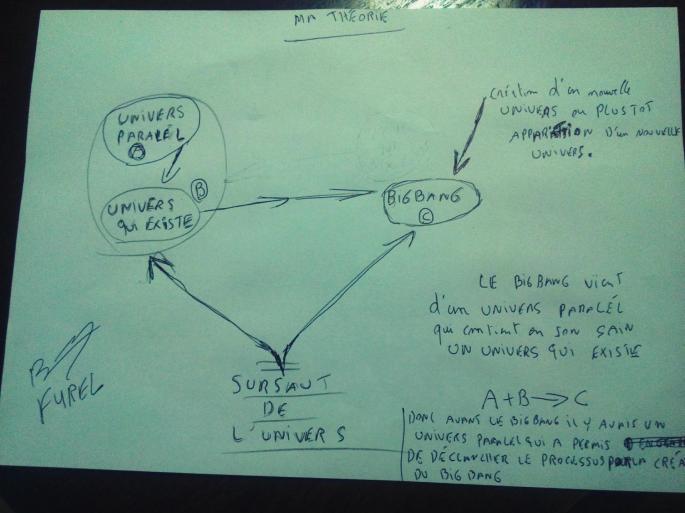 MA THÉORIE
UNIVERS
PARALÉL
A
B
UNIVERS
QUI ÉXISTE
BIGBANG
C
création d'un nouvelle
UNIVERS ou PLUSTOT
APPARITION D'UN NOUVELLE
UNIVERS.
LE BIGBANG vient
d'un UNIVERS PARALÉL
qui contient en son SAIN
UN UNIVERS QUI EXISTE
A+B→C
SURSAUT
DE
L'UNIVERS
FUREL
DONC AVANT LE BIGBANG IL Y AVAIS UN
UNIVERS PARALEL QUI A PERMIS
DE DÉCLANCHER LE PROCESSUS LA CRÉA
DU BIG BANG